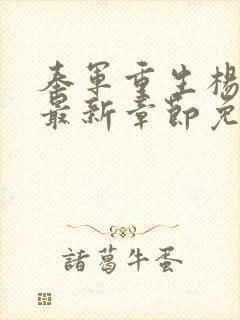 秦军重生杨
最新章节免
諸葛牛蛋